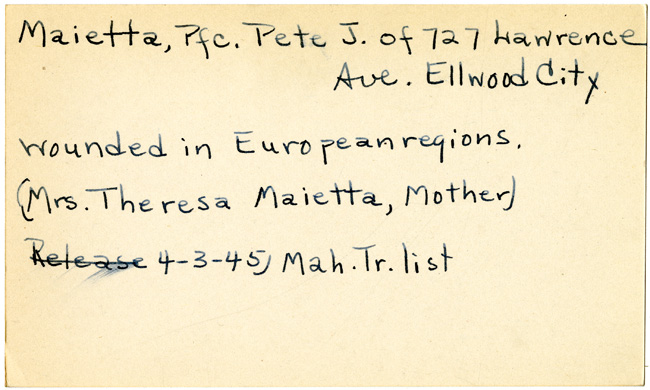 Maietta, Pfc. Pete J. of 727 Lawrence
Ave. Ellwood City
wounded in European regions.
(Mrs. Theresa Maietta, Mother)
Release 4-3-45) Mah. Tr. list